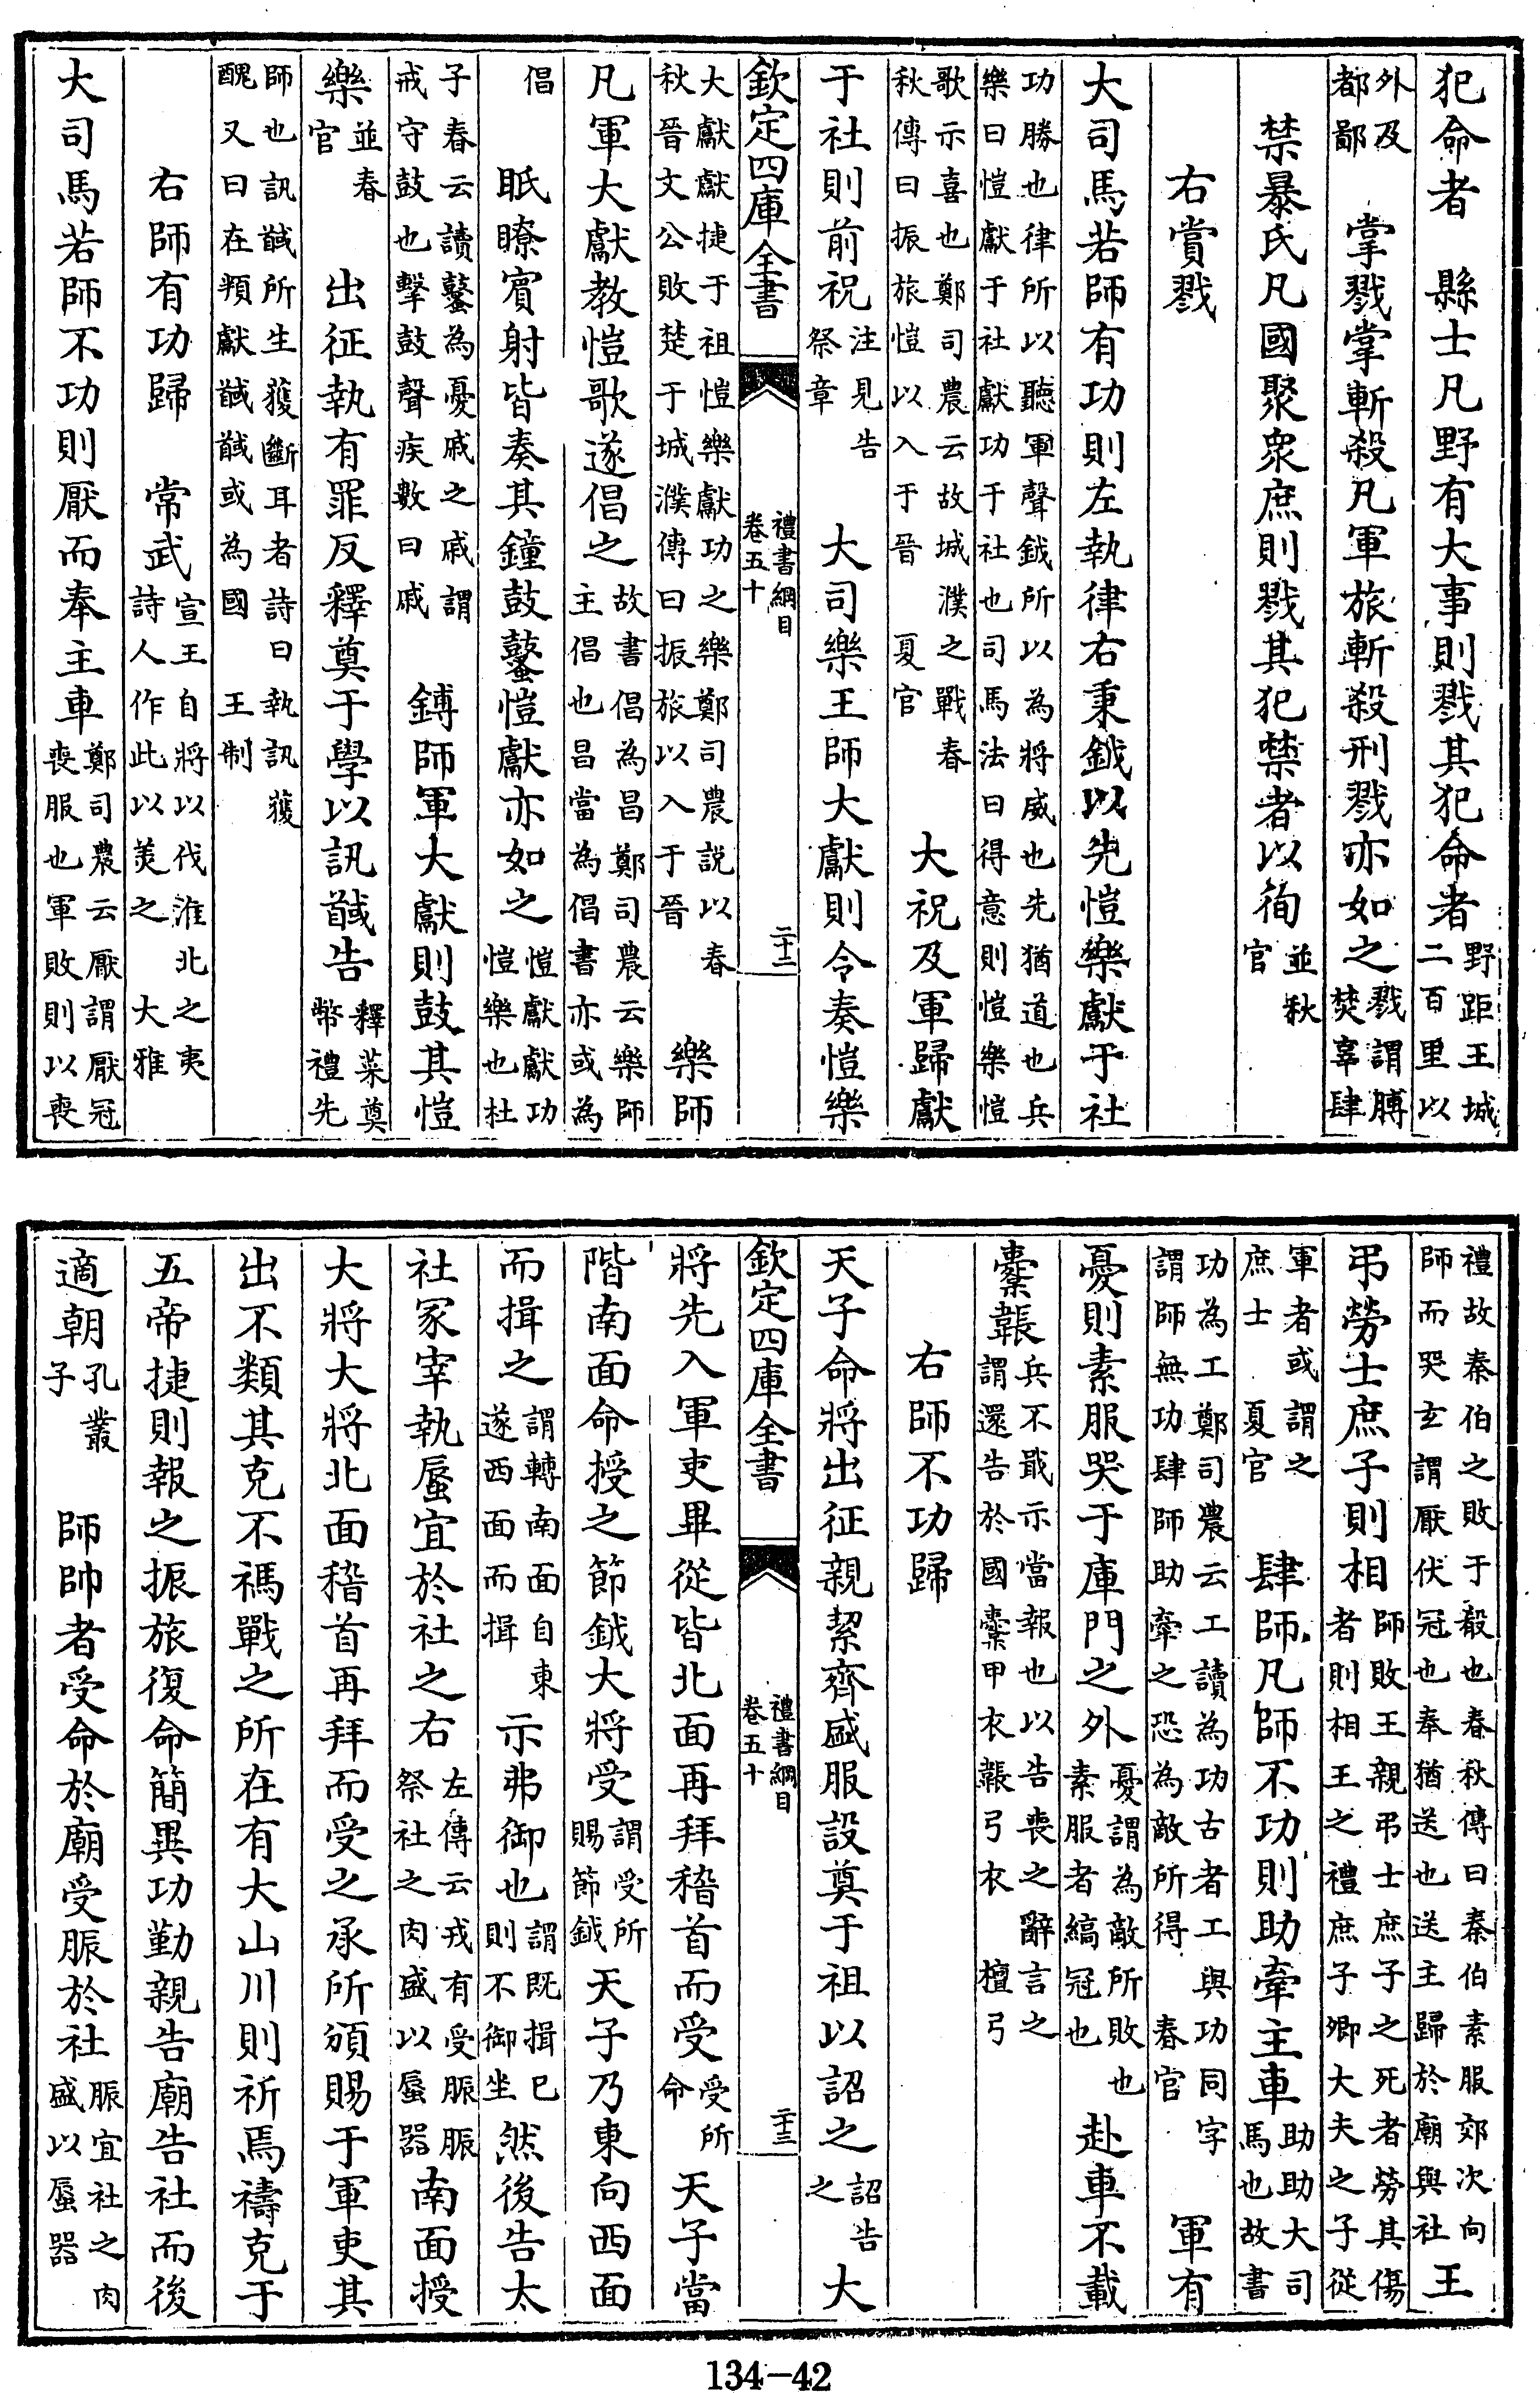 犯命者　縣士凡野有大事則戮其犯命者野距王城二百里以
外及都鄙　掌戮掌斬殺凡軍旅斬殺刑戮亦如之戮謂膊焚辜肆
禁暴氏凡國聚衆庶則戮其犯禁者以徇並秋官
右賞戮
大司馬若師有功則左執律右秉鉞以先愷樂獻于社
功勝也律所以聽軍聲鉞所以為將威也先猶道也兵樂曰愷獻于社獻功于社也司馬法曰得意則愷樂愷
歌示喜也鄭司農云故城濮之戰春秋傳曰振旅愷以入于晉　夏官　大祝及軍歸獻
于社則前祝注見告祭章　大司樂王師大獻則令奏愷樂
欽定四庫全書　禮書綱目卷五十　二十二
大獻獻捷于祖愷樂獻功之樂鄭司農説以春秋晉文公敗楚于城濮傳曰振旅以入于晉　樂師
凡軍大獻教愷歌遂倡之故書倡為昌鄭司農云樂師主倡也昌當為倡書亦或為
倡　眂瞭賓射皆奏其鐘鼓鼜愷獻亦如之愷獻獻功愷樂也杜
子春云讀鼜為憂戚之戚謂戒守鼓也擊鼓聲疾數曰戚　鎛師軍大獻則鼓其愷
樂並春官　出征執有罪反釋奠于學以訊馘告釋菜奠幣禮先
師也訊馘所生獲斷耳者詩曰執訊獲醜又曰在頖獻馘馘或為國　王制
右師有功歸　常武宣王自將以伐淮北之夷詩人作此以美之　大雅
大司馬若師不功則厭而奉主車鄭司農云厭謂厭冠喪服也軍敗則以喪
禮故秦伯之敗于殽也春秋傳曰秦伯素服郊次向師而哭玄謂厭伏冠也奉猶送也送主歸於廟與社　王
弔勞士庶子則相師敗王親弔士庶子之死者勞其傷者則相王之禮庶子卿大夫之子從
軍者或謂之庶士　夏官　肆師凡師不功則助牽主車助助大司馬也故書
功為工鄭司農云工讀為功古者工與功同字謂師無功肆師助牽之恐為敵所得　春官　軍有
憂則素服哭于庫門之外憂謂為敵所敗也素服者縞冠也　赴車不載
櫜韔兵不戢示當報也以告喪之辭言之謂還告於國櫜甲衣韔弓衣　檀弓
右師不功歸
天子命將出征親絜齊盛服設奠于祖以詔之詔告之　大
欽定四庫全書　禮書綱目卷五十　二十三
將先入軍吏畢從皆北面再拜稽首而受受所命　天子當
階南面命授之節鉞大將受謂受所賜節鉞　天子乃東向西面
而揖之謂轉南面自東遂西面而揖　示弗御也謂既揖已則不御坐　然後告太
社冢宰執蜃宜於社之右左傳云戎有受脤脤祭社之肉盛以蜃器　南面授
大將大將北面稽首再拜而受之承所頒賜于軍吏其
出不類其克不禡戰之所在有大山川則祈焉禱克于
五帝捷則報之振旅復命簡異功勤親告廟告社而後
適朝孔叢子　師帥者受命於廟受脤於社脤宜社之肉盛以蜃器
134-42